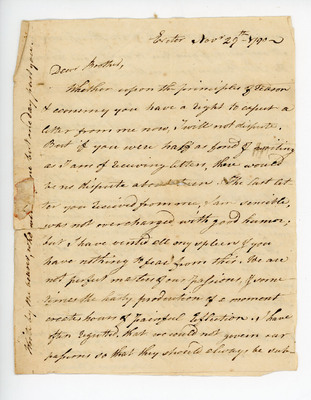 Exeter Novr 29th 1792
Dear Brother,
Whether upon the principles of reason
& economy you have a right to expect a
letter from me now, I will not dispute.
But if you were half as fond of writing
as I am of receiving letters, there would
be no dispute about The last let
ter you received from me, I am sensible,
was not overcharged with good humor,
but I have vented all my spleen & you
have nothing to fear from this. We are
not perfect masters of our passions, & some
times the hasty production of a moment
creates hours of painful reflection. I have
often regretted, that we could not govern our
passions so that they should always be sub-
This is the reason, why
me but one day past you.